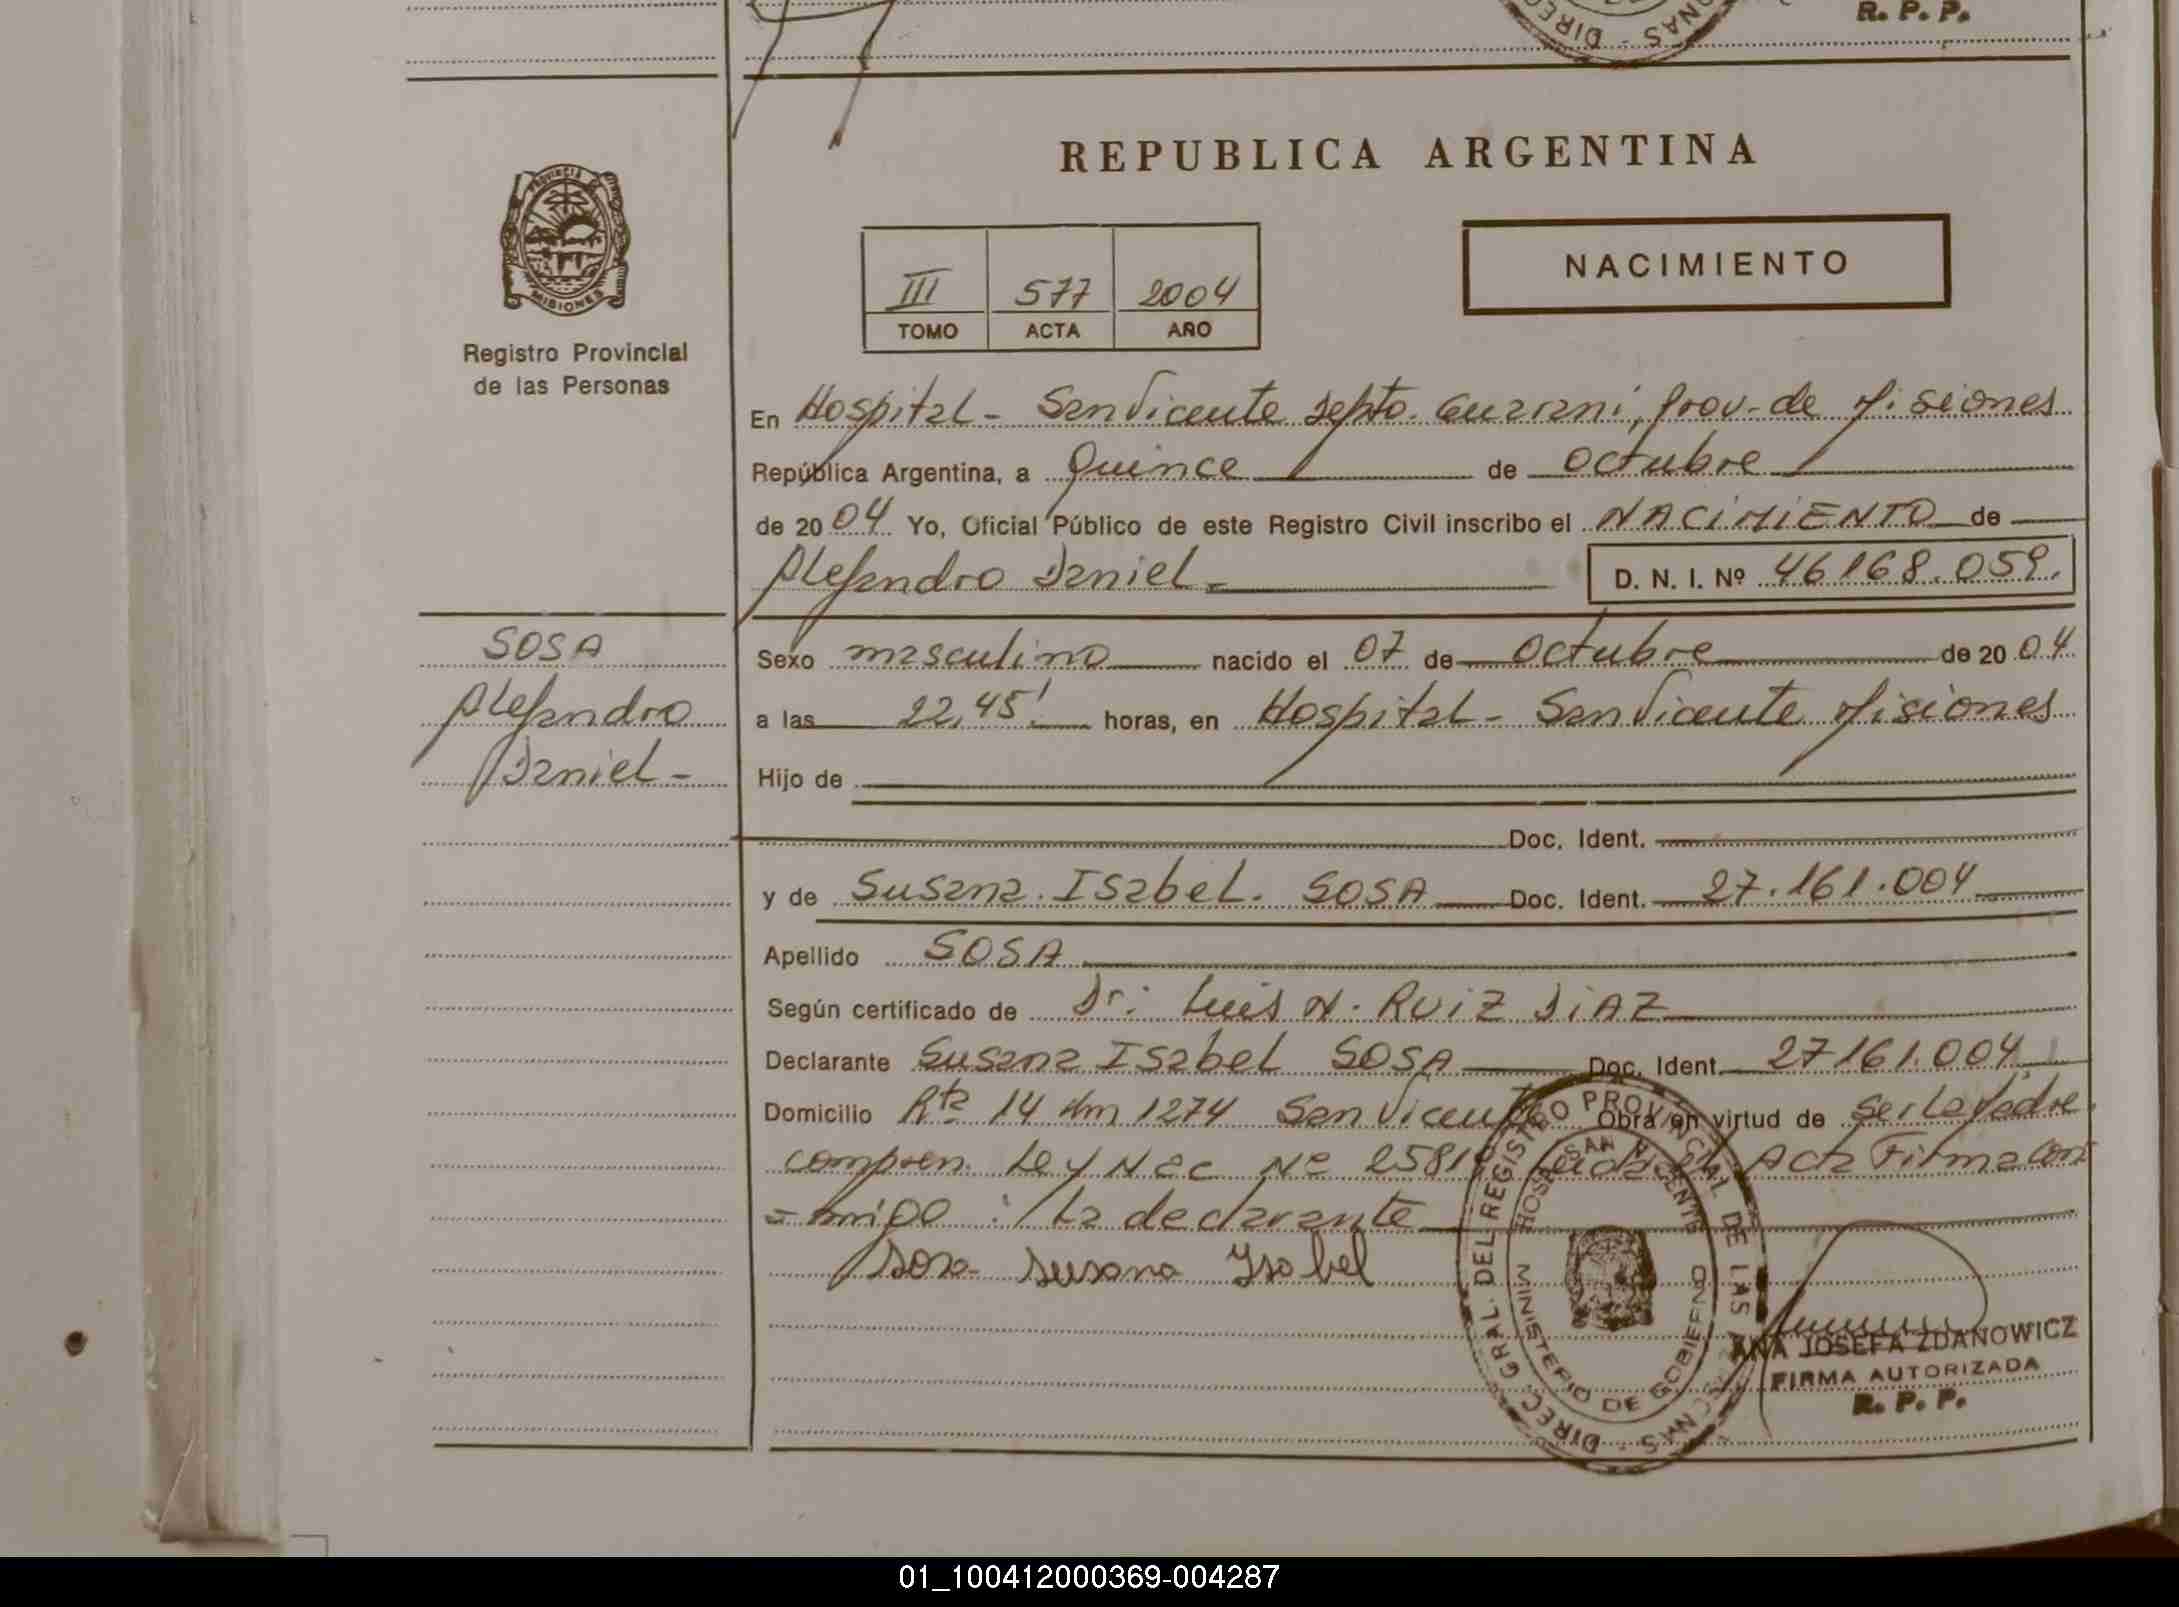 R. P. P.
DIREC
NAS
REPUBLICA ARGENTINA
PROVINCIA DE
MISIONES
Registro Provincial
de las Personas
III 577 2004
TOMO ACTA AÑO
NACIMIENTO
En Hospital - San Vicente Depto. Guarani, Prov. de Misiones
República Argentina, a Quince de Octubre
de 2004 Yo, Oficial Público de este Registro Civil inscribo el NACIMIENTO de
Alejandro Daniel - D. N. I. Nº 46168.059.
SOSA
Alejandro
Daniel -
Sexo masculino nacido el 07 de Octubre de 2004
a las 22,45' horas, en Hospital - San Vicente Misiones
Hijo de
Doc. Ident.
y de Susana Isabel. SOSA Doc. Ident. 27.161.004
Apellido SOSA
Según certificado de Dr: Luis N. RUIZ DIAZ
Declarante Susana Isabel SOSA Doc. Ident. 27161.004
Domicilio Rta 14 Km 1274 San Vicente Obra en virtud de Ser la Madre
compren. Ley Nac Nº 2581 Acta Firma con
= migo : La declarante
Sosa Susana Ysabel
DIREC. GRAL. DEL REGISTRO PROVINCIAL DE LAS PERSONAS
HOSP. SAN VICENTE
MINISTERIO DE GOBIERNO
ANA JOSEFA ZDANOWICZ
FIRMA AUTORIZADA
R. P. P.
01_100412000369-004287